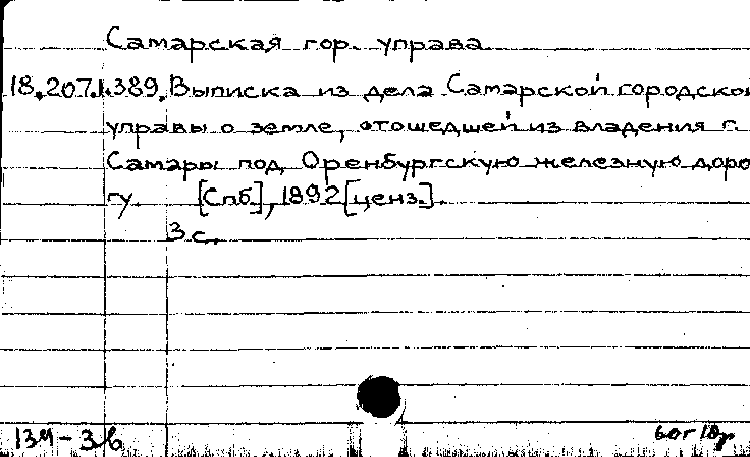 Самарская гор. управа
18.207.1.389. Выписка из дела Самарской городской
управы о земле, отошедшей из владения г.
Самары под Оренбургскую железную доро
гу. [Спб], 1892 [ценз.].
3 с.